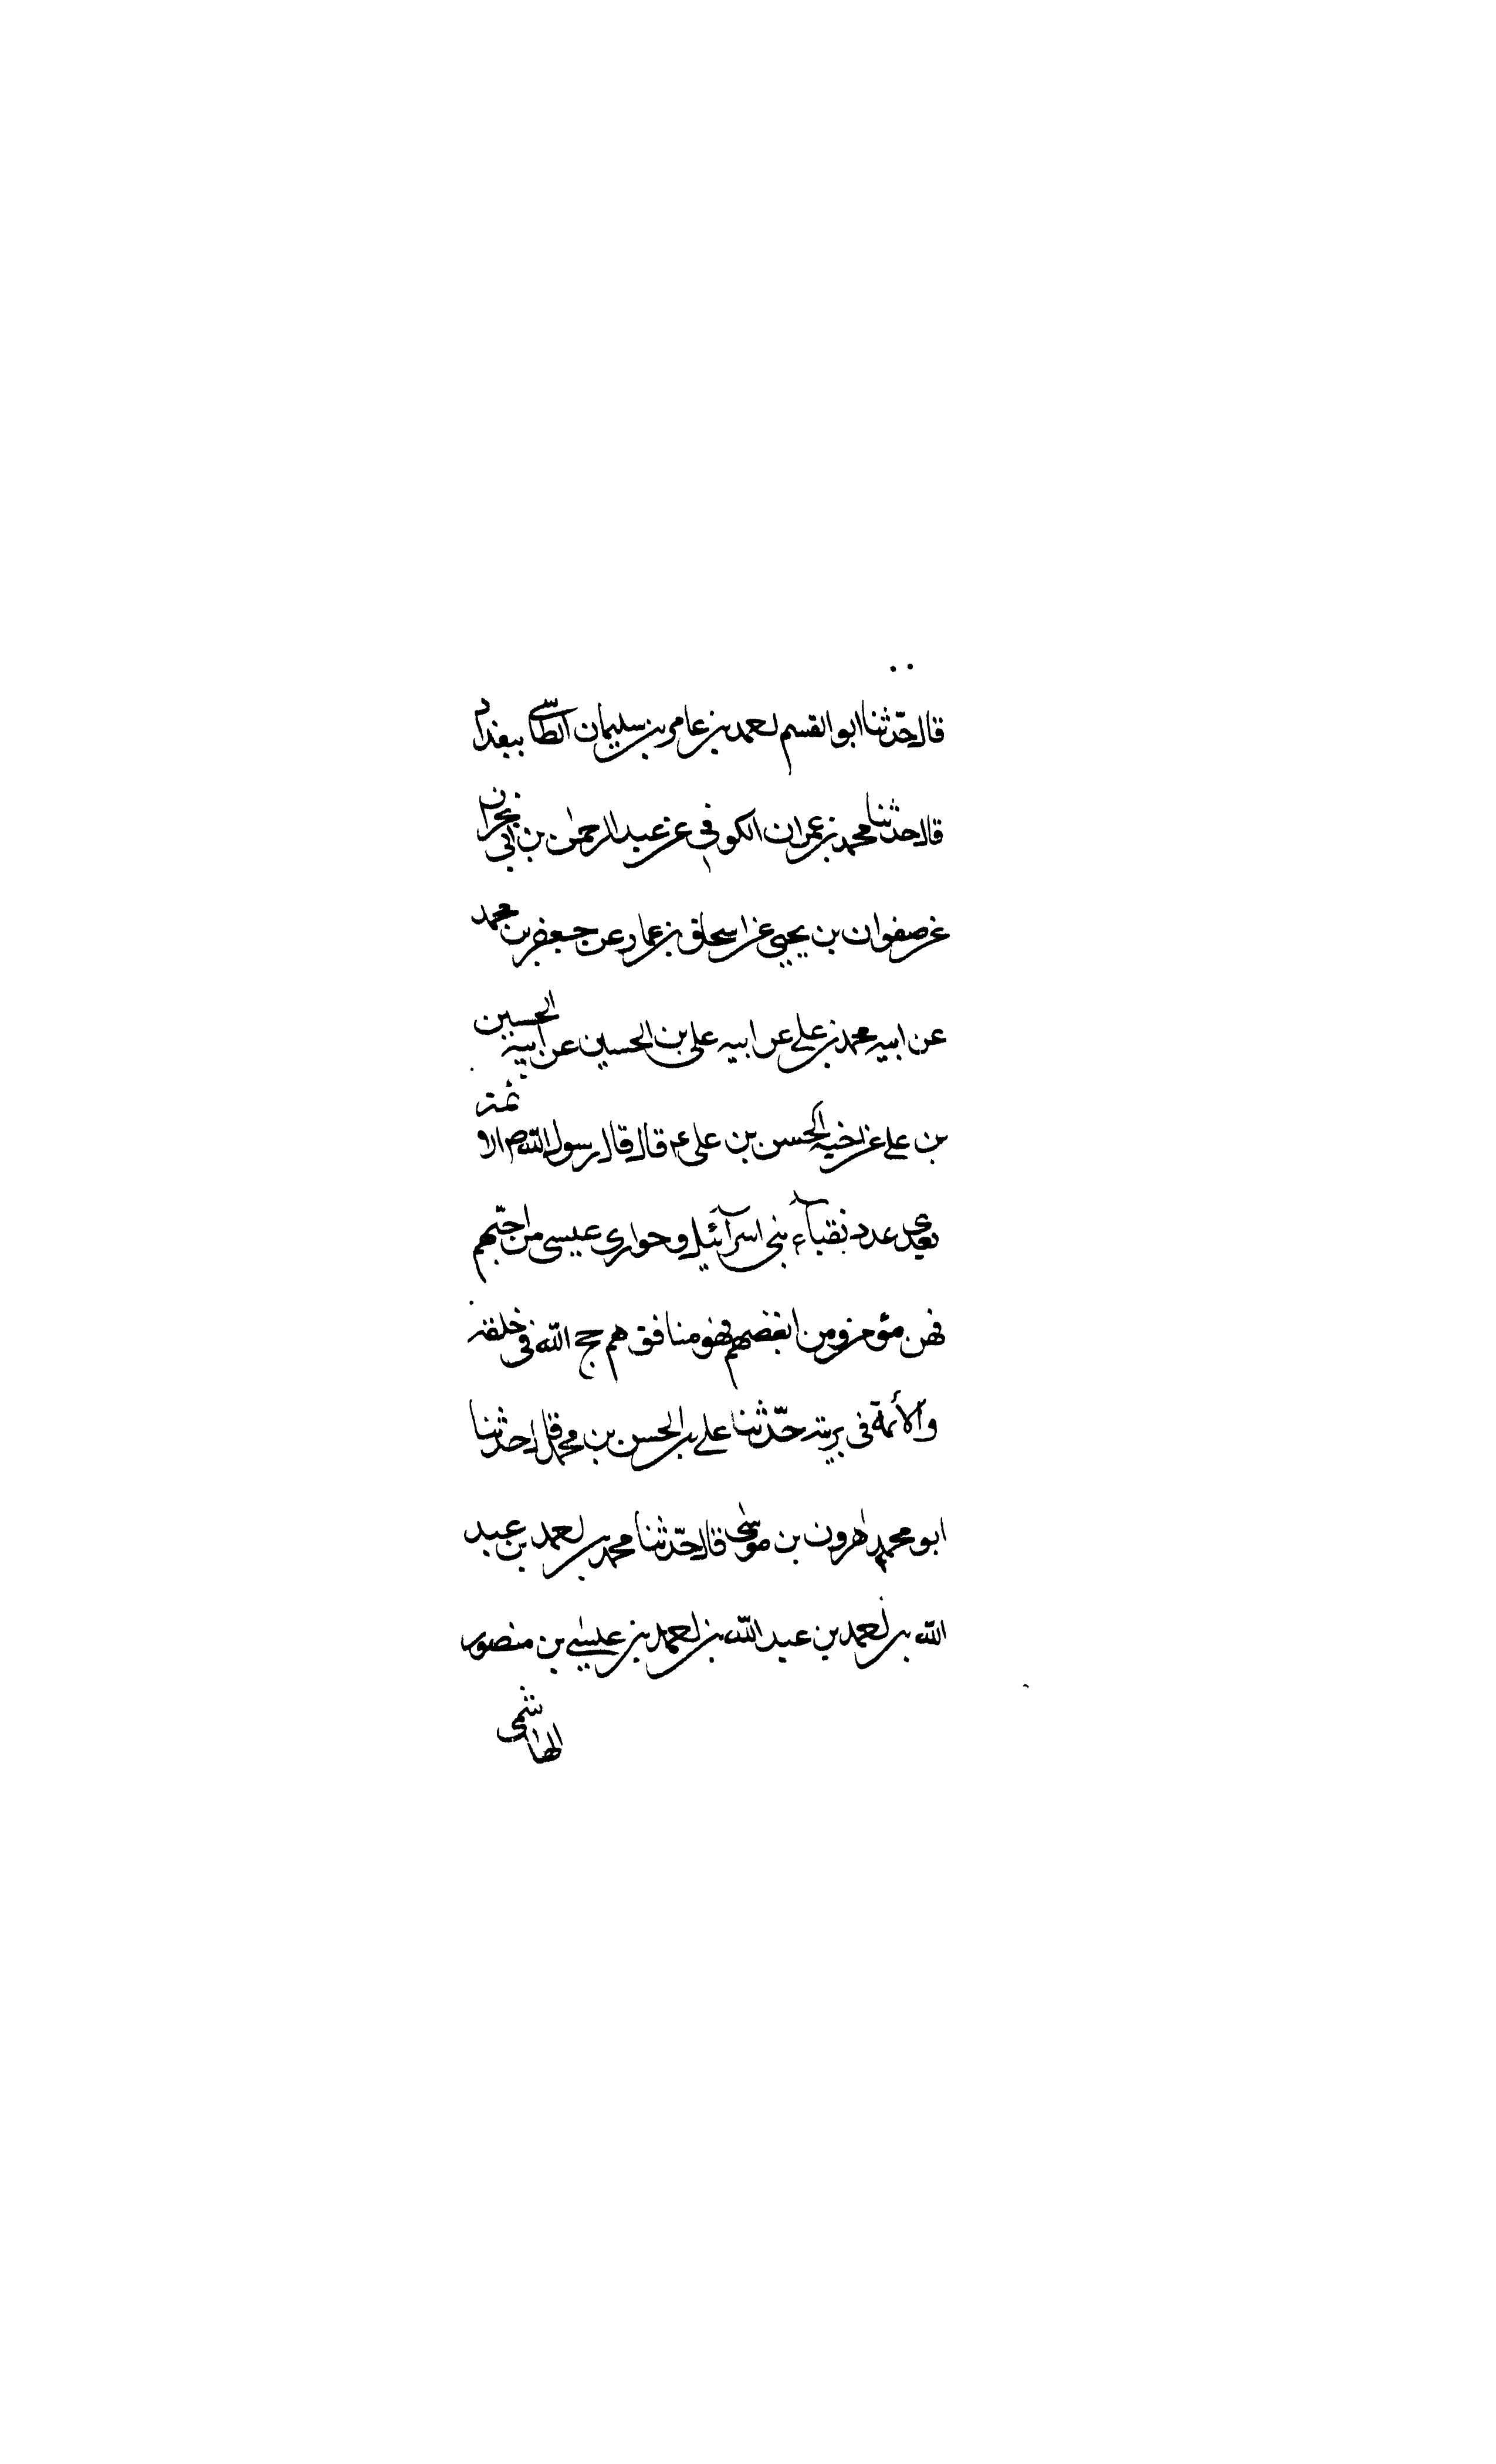 قال حدّثنا ابو القسم احمد بن عامر بن سليمان الطائى ببغداد
قال حدثنا محمد بن عمران الكوفى عن عبد الرحمن بن ابى نجران
عن صفوان بن يحيى عن اسحاق بن عمار عن جعفر بن محمد
عن ابيه محمد بن على عن ابيه على بن الحسين عن ابيه الحسين
بن على عن اخيه الحسن بن على ع قال قال رسول الله ص الائمة
بعدى عدد نقبآء بنى اسرآئيل وحوارى عيسى من احبّهم
فهو مؤمن ومن ابغضهم فهو منافق هم حجج الله فى خلقه
والأئمة فى بريته حدّثنا على بن الحسن بن محمد قال حدثنا
ابو محمد هرون بن موسى قال حدّثنا محمد بن احمد بن عبيد
الله بن احمد بن عبد الله بن احمد بن عيسى بن منصور
الهاشمى